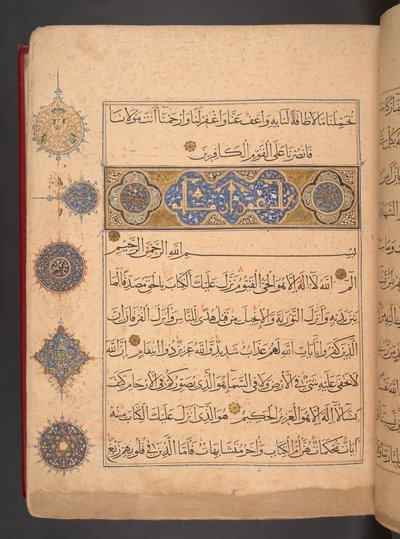 تحملنا ما لا طاقة لنا به واعف عنا واغفر لنا وارحمنا أنت مولانا
فانصرنا على القوم الكافرين
بسم الله الرحمن الرحيم
الم الله لا إله إلا هو الحي القيوم نزل عليك الكتاب بالحق مصدقا لما
بين يديه وأنزل التورية والإنجيل من قبل هدى للناس وأنزل الفرقان إن
الذين كفروا بآيات الله لهم عذاب شديد والله عزيز ذو انتقام إن الله
لا يخفى عليه شيء في الأرض ولا في السماء هو الذي يصوركم في الأرحام كيف
يشاء لا إله إلا هو العزيز الحكيم هو الذي أنزل عليك الكتاب منه
آيات محكمات هن أم الكتاب وأخر متشابهات فأما الذين في قلوبهم زيغ